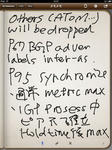 others CATOM...
will be dropped
P67 BGP adver
labels inter-as.
P95 synchronize
metric max
IGP process 中
Holdtime 後 max